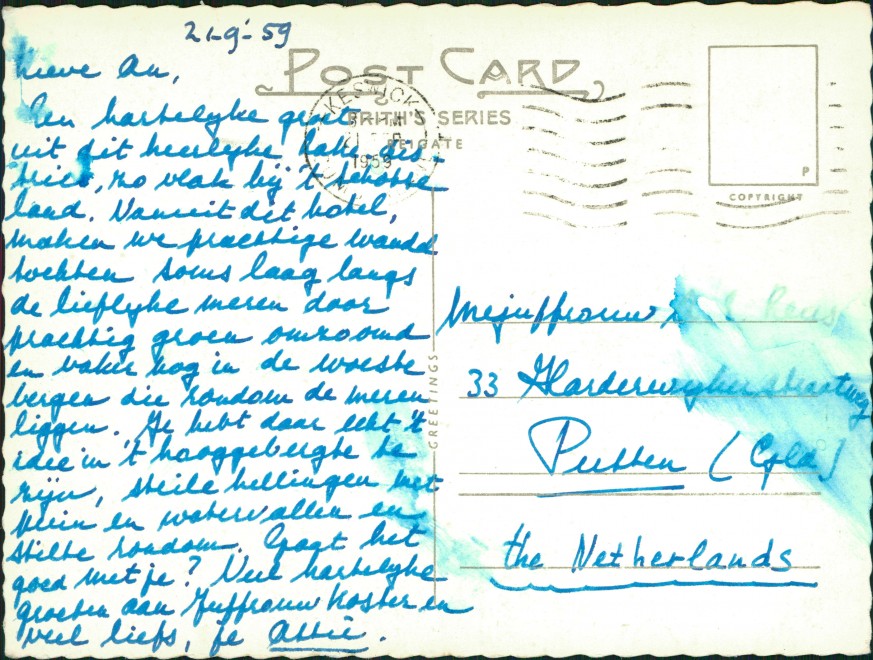 21-9-'59
Lieve An,
Een hartelijke groet
uit dit heerlijke Lake-dis-
trict, zo vlak bij 't Schotse
land. Vanuit dit hotel,
maken we prachtige wandel
tochten soms laag langs
de lieflijke meren door
prachtig groen omzoomd
en vaker hog in de woeste
bergen die rondom de meren
liggen. Je hebt daar echt 't
idee in 't hooggebergte te
zijn, steile hellingen met
puin en watervallen en
stilte rondom. Gaat het
goed met je? Veel hartelijke
groeten aan Juffrouw Koster en
veel liefs, je Attie.
POST CARD
FRITH'S SERIES
REIGATE
KESWICK
1959
P
COPYRIGHT
GREETINGS
Mejuffrouw
33 Harderwijkerstraatweg
Putten (Gld)
the Netherlands